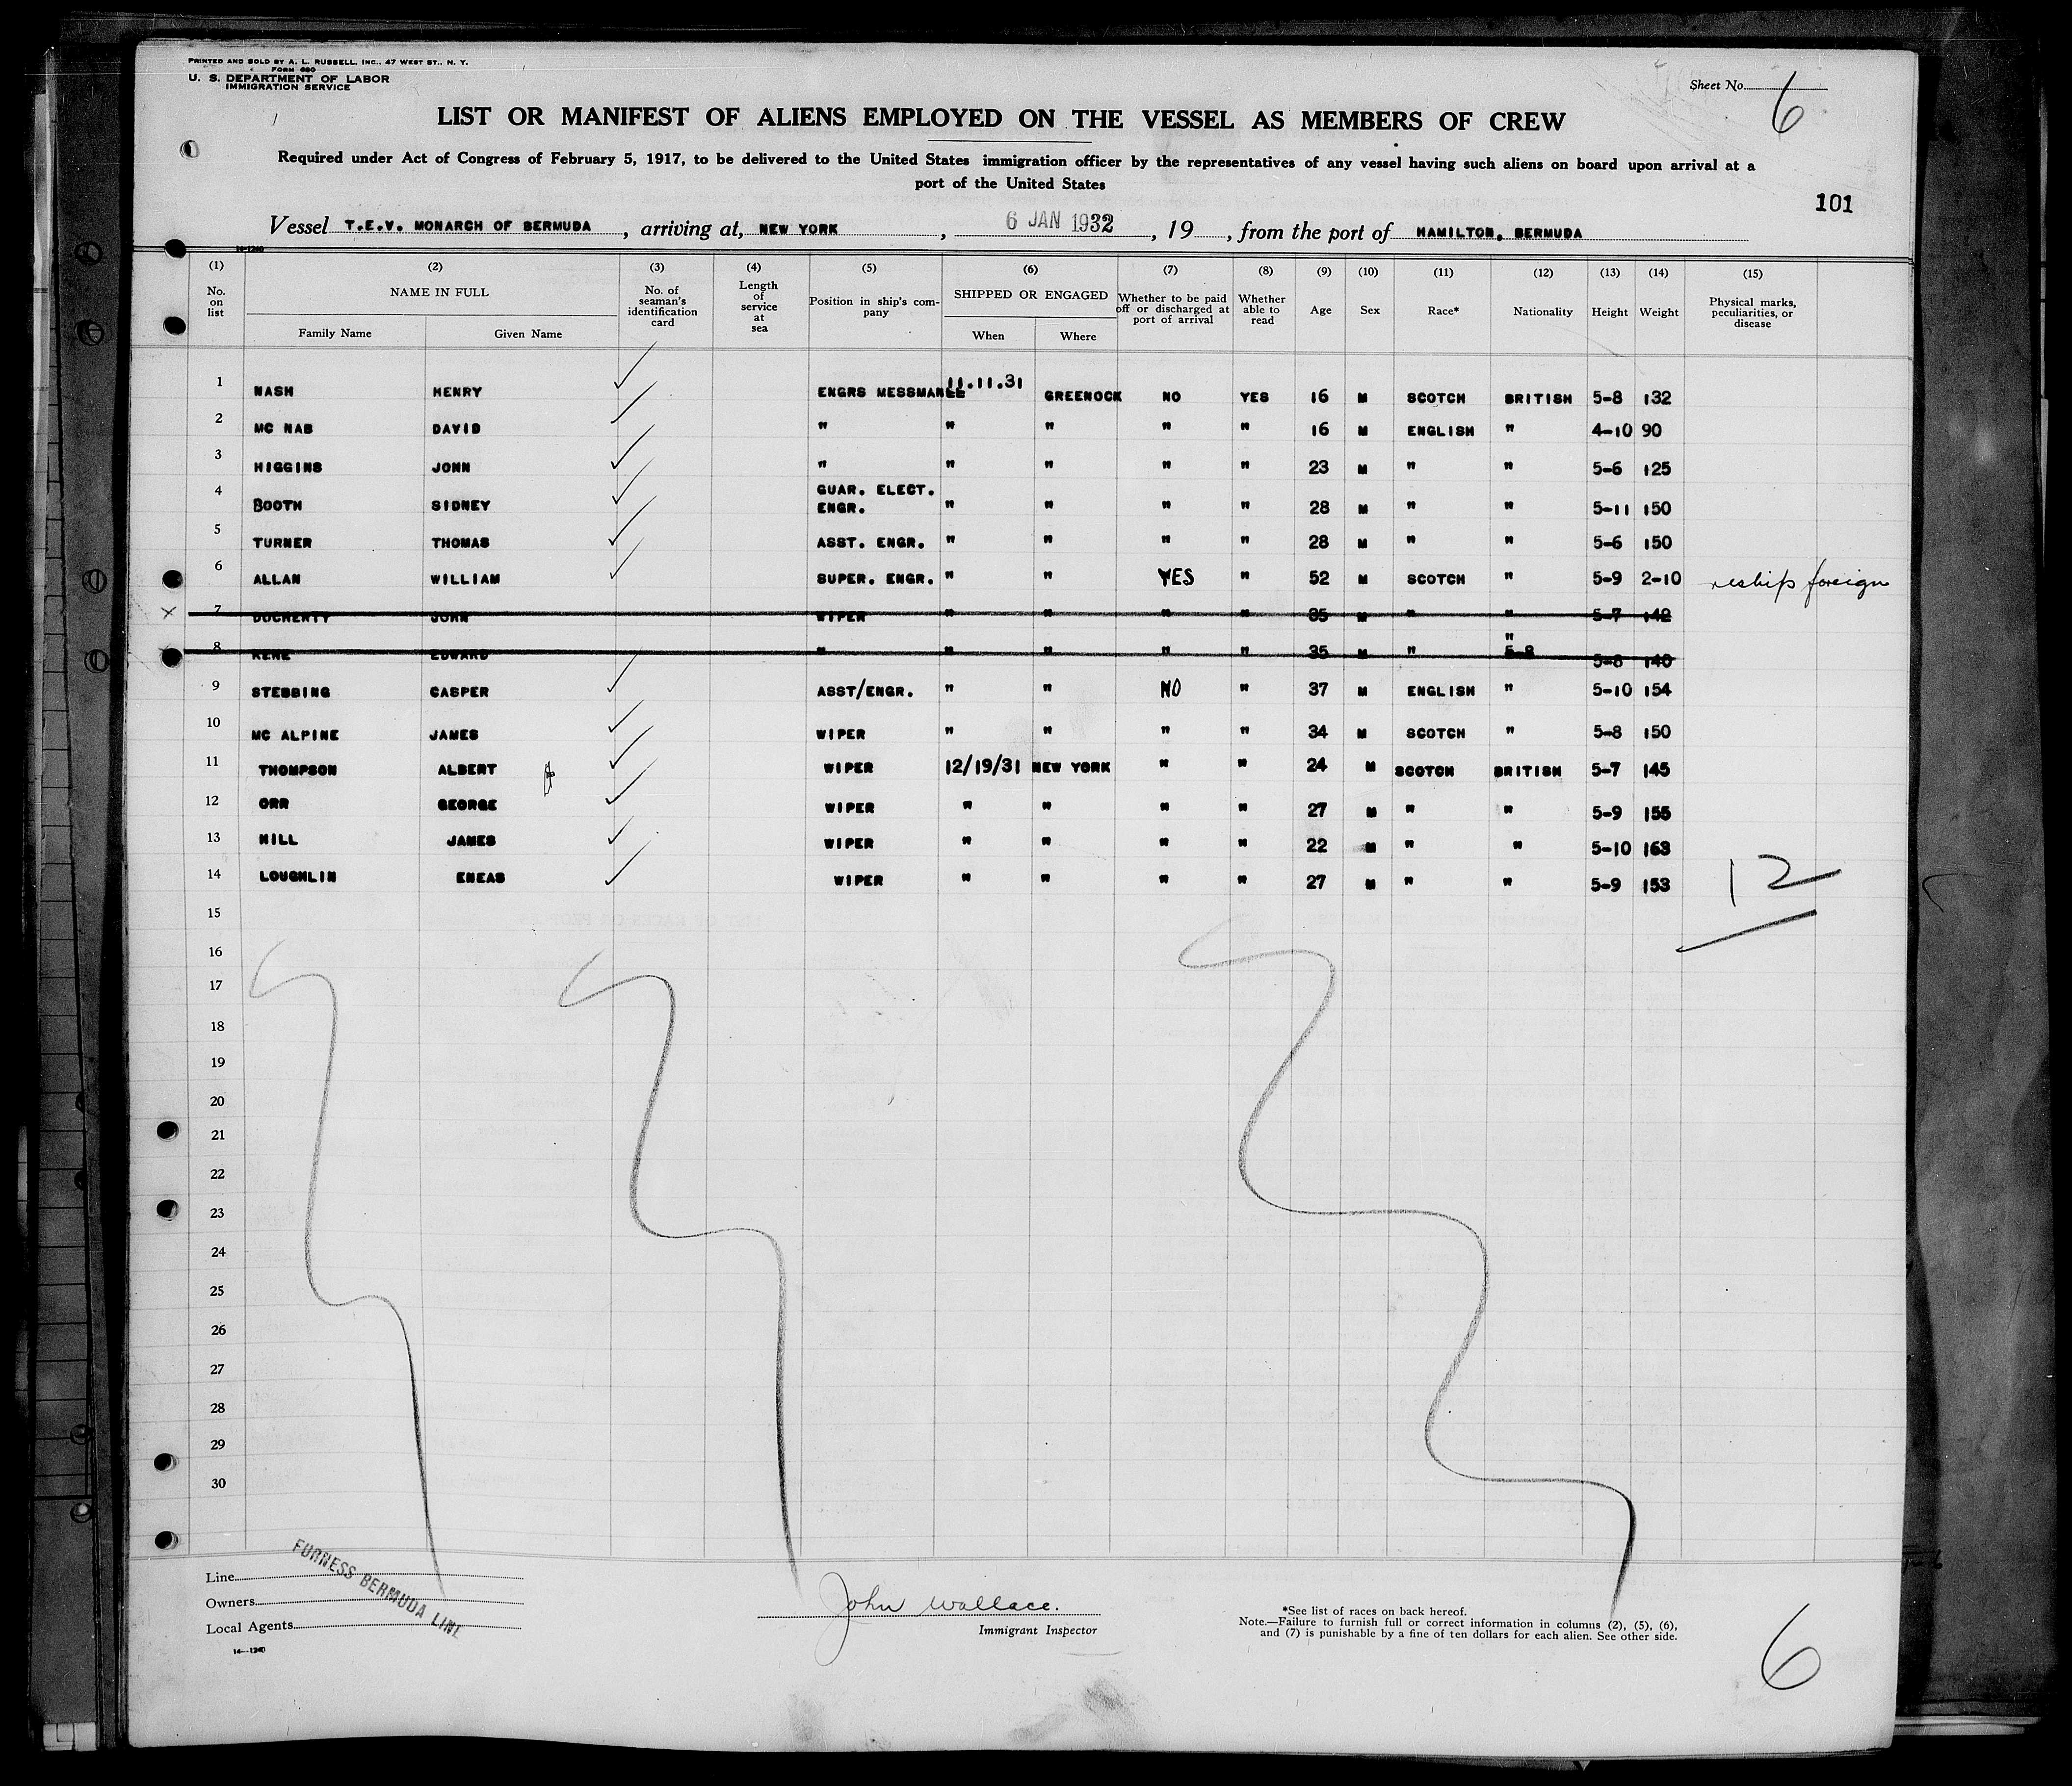 PRINTED AND SOLD BY A. L. RUSSELL, INC., 47 WEST ST., N. Y.
FORM 680
U. S. DEPARTMENT OF LABOR
IMMIGRATION SERVICE
Sheet No. 6
LIST OR MANIFEST OF ALIENS EMPLOYED ON THE VESSEL AS MEMBERS OF CREW
Required under Act of Congress of February 5, 1917, to be delivered to the United States immigration officer by the representatives of any vessel having such aliens on board upon arrival at a
port of the United States
101
Vessel T.E.V. MONARCH OF BERMUDA, arriving at, NEW YORK, 6 JAN 1932, 19, from the port of HAMILTON, BERMUDA
14-1240
(1) (2) (3) (4) (5) (6) (7) (8) (9) (10) (11) (12) (13) (14) (15)
No. on list NAME IN FULL Family Name Given Name No. of seaman's identification card Length of service at sea Position in ship's company SHIPPED OR ENGAGED When Where Whether to be paid off or discharged at port of arrival Whether able to read Age Sex Race* Nationality Height Weight Physical marks, peculiarities, or disease
1 NASH HENRY ENGRS MESSMAN 11.11.31 GREENOCK NO YES 16 M SCOTCH BRITISH 5-8 132
2 MC NAB DAVID " " " " " 16 M ENGLISH " 4-10 90
3 HIGGINS JOHN " " " " " 23 M " " 5-6 125
4 BOOTH SIDNEY GUAR. ELECT. ENGR. " " " " 28 M " " 5-11 150
5 TURNER THOMAS ASST. ENGR. " " " " 28 M " " 5-6 150
6 ALLAN WILLIAM SUPER. ENGR. " " YES " 52 M SCOTCH " 5-9 2-10 reship foreign
7 DOCHERTY JOHN WIPER " " " " 35 M " " 5-7 142
8 KENE EDWARD " " " " " 35 M " " 5-8 5-8 140
9 STEBBING CASPER ASST/ENGR. " " NO " 37 M ENGLISH " 5-10 154
10 MC ALPINE JAMES WIPER " " " " 34 M SCOTCH " 5-8 150
11 THOMPSON ALBERT WIPER 12/19/31 NEW YORK " " 24 M SCOTCH BRITISH 5-7 145
12 ORR GEORGE WIPER " " " " 27 M " " 5-9 155
13 HILL JAMES WIPER " " " " 22 M " " 5-10 163
14 LOUGHLIN ENEAS WIPER " " " " 27 M " " 5-9 153
12
15
16
17
18
19
20
21
22
23
24
25
26
27
28
29
30
Line
Owners
Local Agents
FURNESS BERMUDA LINE
14-1240
John Wallace.
Immigrant Inspector
*See list of races on back hereof.
Note.—Failure to furnish full or correct information in columns (2), (5), (6),
and (7) is punishable by a fine of ten dollars for each alien. See other side.
6